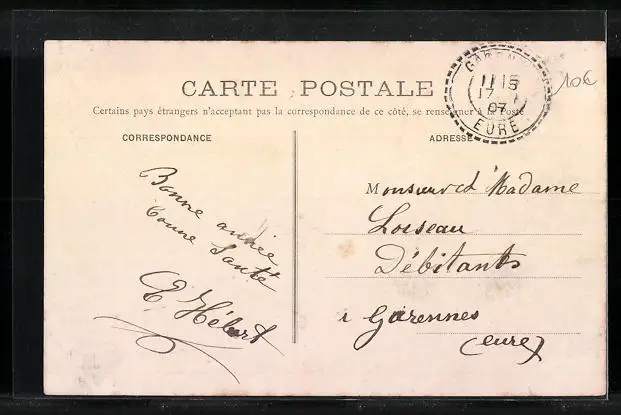 CARTE POSTALE
Certains pays étrangers n'acceptant pas la correspondance de ce côté, se renseigner à la Poste
CORRESPONDANCE
ADRESSE
Bonne année
bonne Santé
E. Hébert
Monsieur et Madame
Loiseau
Débitants
à Garennes
(eure)
17
07
EURE
10€